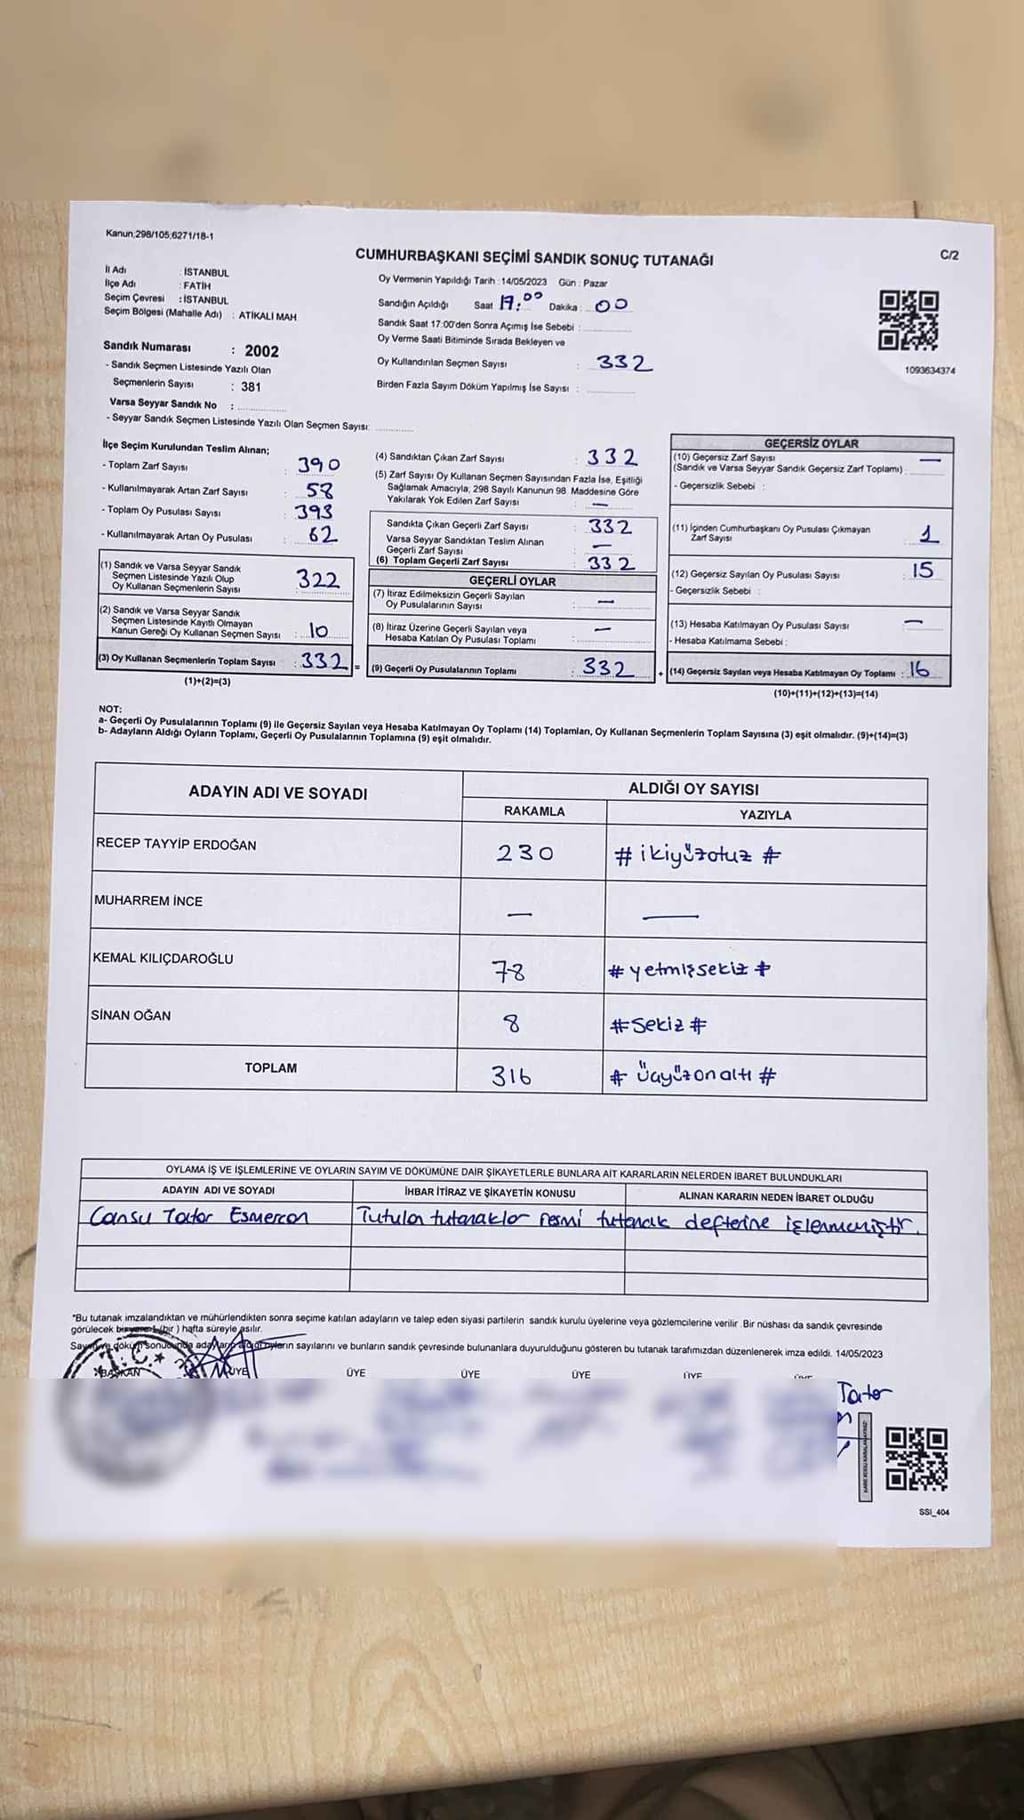 Kanun;298/105;6271/18-1
C/2
CUMHURBAŞKANI SEÇİMİ SANDIK SONUÇ TUTANAĞI
İl Adı : İSTANBUL
İlçe Adı : FATİH
Seçim Çevresi : İSTANBUL
Seçim Bölgesi (Mahalle Adı) : ATİKALİ MAH
Sandık Numarası : 2002
- Sandık Seçmen Listesinde Yazılı Olan
Seçmenlerin Sayısı : 381
Varsa Seyyar Sandık No :
- Seyyar Sandık Seçmen Listesinde Yazılı Olan Seçmen Sayısı:
Oy Vermenin Yapıldığı Tarih : 14/05/2023 Gün : Pazar
Sandığın Açıldığı Saat 17:00 Dakika : 00
Sandık Saat 17:00'den Sonra Açımış İse Sebebi :
Oy Verme Saati Bitiminde Sırada Bekleyen ve
Oy Kullandırılan Seçmen Sayısı : 332
Birden Fazla Sayım Döküm Yapılmış İse Sayısı :
1093634374
İlçe Seçim Kurulundan Teslim Alınan;
- Toplam Zarf Sayısı : 390
- Kullanılmayarak Artan Zarf Sayısı : 58
- Toplam Oy Pusulası Sayısı : 393
- Kullanılmayarak Artan Oy Pusulası : 62
(1) Sandık ve Varsa Seyyar Sandık
Seçmen Listesinde Yazılı Olup
Oy Kullanan Seçmenlerin Sayısı : 322
(2) Sandık ve Varsa Seyyar Sandık
Seçmen Listesinde Kayıtlı Olmayan
Kanun Gereği Oy Kullanan Seçmen Sayısı : 10
(3) Oy Kullanan Seçmenlerin Toplam Sayısı : 332
(1)+(2)=(3)
(4) Sandıktan Çıkan Zarf Sayısı : 332
(5) Zarf Sayısı Oy Kullanan Seçmen Sayısından Fazla İse, Eşitliği
Sağlamak Amacıyla, 298 Sayılı Kanunun 98. Maddesine Göre
Yakılarak Yok Edilen Zarf Sayısı : —
Sandıkta Çıkan Geçerli Zarf Sayısı : 332
Varsa Seyyar Sandıktan Teslim Alınan
Geçerli Zarf Sayısı : —
(6) Toplam Geçerli Zarf Sayısı : 332
GEÇERLİ OYLAR
(7) İtiraz Edilmeksizin Geçerli Sayılan
Oy Pusulalarının Sayısı : —
(8) İtiraz Üzerine Geçerli Sayılan veya
Hesaba Katılan Oy Pusulası Toplamı : —
= (9) Geçerli Oy Pusulalarının Toplamı : 332
GEÇERSİZ OYLAR
(10) Geçersiz Zarf Sayısı
(Sandık ve Varsa Seyyar Sandık Geçersiz Zarf Toplamı) : —
- Geçersizlik Sebebi :
(11) İçinden Cumhurbaşkanı Oy Pusulası Çıkmayan
Zarf Sayısı : 1
(12) Geçersiz Sayılan Oy Pusulası Sayısı : 15
- Geçersizlik Sebebi :
(13) Hesaba Katılmayan Oy Pusulası Sayısı : —
- Hesaba Katılmama Sebebi :
+ (14) Geçersiz Sayılan veya Hesaba Katılmayan Oy Toplamı : 16
(10)+(11)+(12)+(13)=(14)
NOT:
a- Geçerli Oy Pusulalarının Toplamı (9) ile Geçersiz Sayılan veya Hesaba Katılmayan Oy Toplamı (14) Toplamları, Oy Kullanan Seçmenlerin Toplam Sayısına (3) eşit olmalıdır. (9)+(14)=(3)
b- Adayların Aldığı Oyların Toplamı, Geçerli Oy Pusulalarının Toplamına (9) eşit olmalıdır.
ADAYIN ADI VE SOYADI
ALDIĞI OY SAYISI
RAKAMLA YAZIYLA
RECEP TAYYİP ERDOĞAN 230 # ikiyüzotuz #
MUHARREM İNCE — —
KEMAL KILIÇDAROĞLU 78 # yetmişsekiz #
SİNAN OĞAN 8 # sekiz #
TOPLAM 316 # üçyüzonaltı #
OYLAMA İŞ VE İŞLEMLERİNE VE OYLARIN SAYIM VE DÖKÜMÜNE DAİR ŞİKAYETLERLE BUNLARA AİT KARARLARIN NELERDEN İBARET BULUNDUKLARI
ADAYIN ADI VE SOYADI İHBAR İTİRAZ VE ŞİKAYETİN KONUSU ALINAN KARARIN NEDEN İBARET OLDUĞU
Cansu Tator Esmercan Tutulan tutanaklar resmi tutanak defterine işlenmemiştir.
*Bu tutanak imzalandıktan ve mühürlendikten sonra seçime katılan adayların ve talep eden siyasi partilerin sandık kurulu üyelerine veya gözlemcilerine verilir. Bir nüshası da sandık çevresinde
görülecek bir yere 1 (bir ) hafta süreyle asılır.
Sayım ve döküm sonucunda adayların aldığı oyların sayılarını ve bunların sandık çevresinde bulunanlara duyurulduğunu gösteren bu tutanak tarafımızdan düzenlenerek imza edildi. 14/05/2023
BAŞKAN ÜYE ÜYE ÜYE ÜYE ÜYE
T.C.
Tator
SSI_404